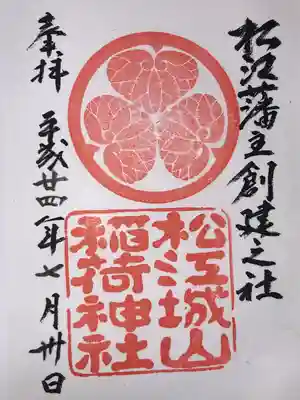 松江藩主創建之社
松江城山
稲荷神社
奉拝
平成廿四年七月卅日